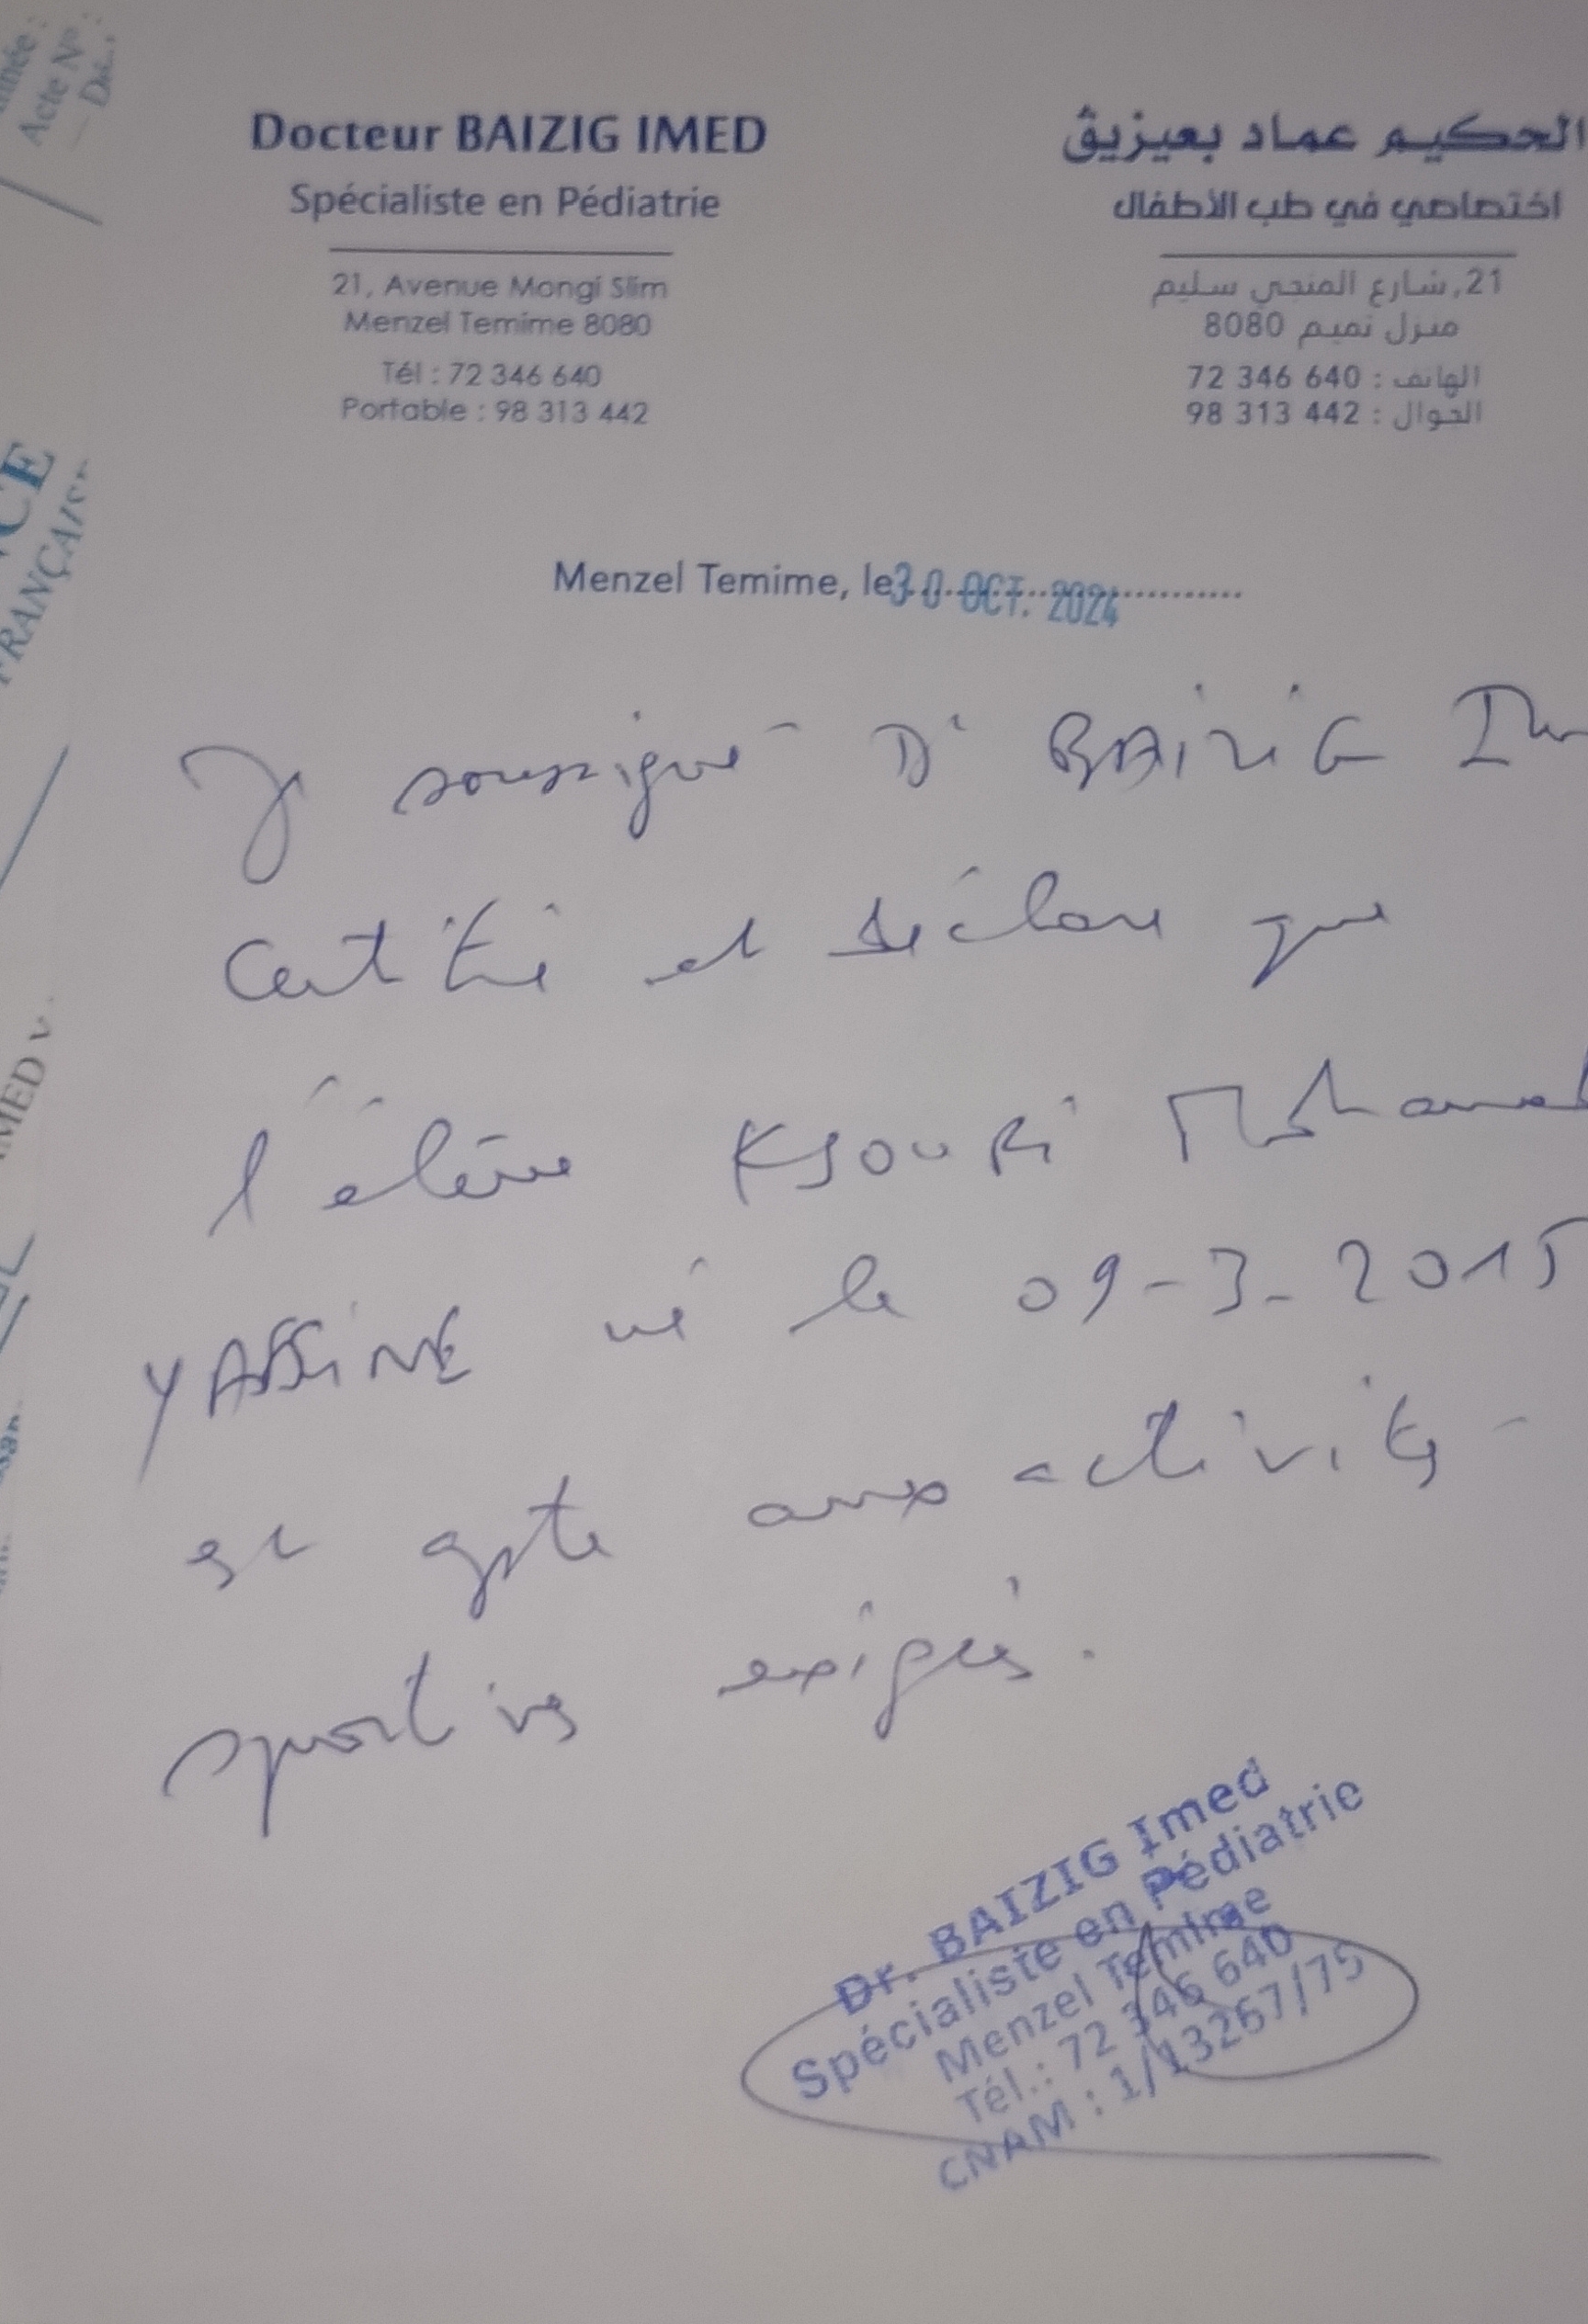 née :
Acte N° :
Docteur BAIZIG IMED
Spécialiste en Pédiatrie
21, Avenue Mongi Slim
Menzel Temime 8080
Tél : 72 346 640
Portable : 98 313 442
الحكيم عماد بعيزيق
اختصاصي في طب الأطفال
21, شارع المنجي سليم
منزل تميم 8080
الهاتف : 72 346 640
الجوال : 98 313 442
CE
FRANÇAIS
MED
Menzel Temime, le 30 OCT. 2024
Je soussigné Dr BAIZIG Im
Certifie et déclare que
l'élève KSOURI Mohamed
YASSINE né le 09-3-2015
est apte aux activités
sportives exigées.
Dr. BAIZIG Imed
Spécialiste en Pédiatrie
Menzel Temime
Tél.: 72 346 640
CNAM : 1/13267/75